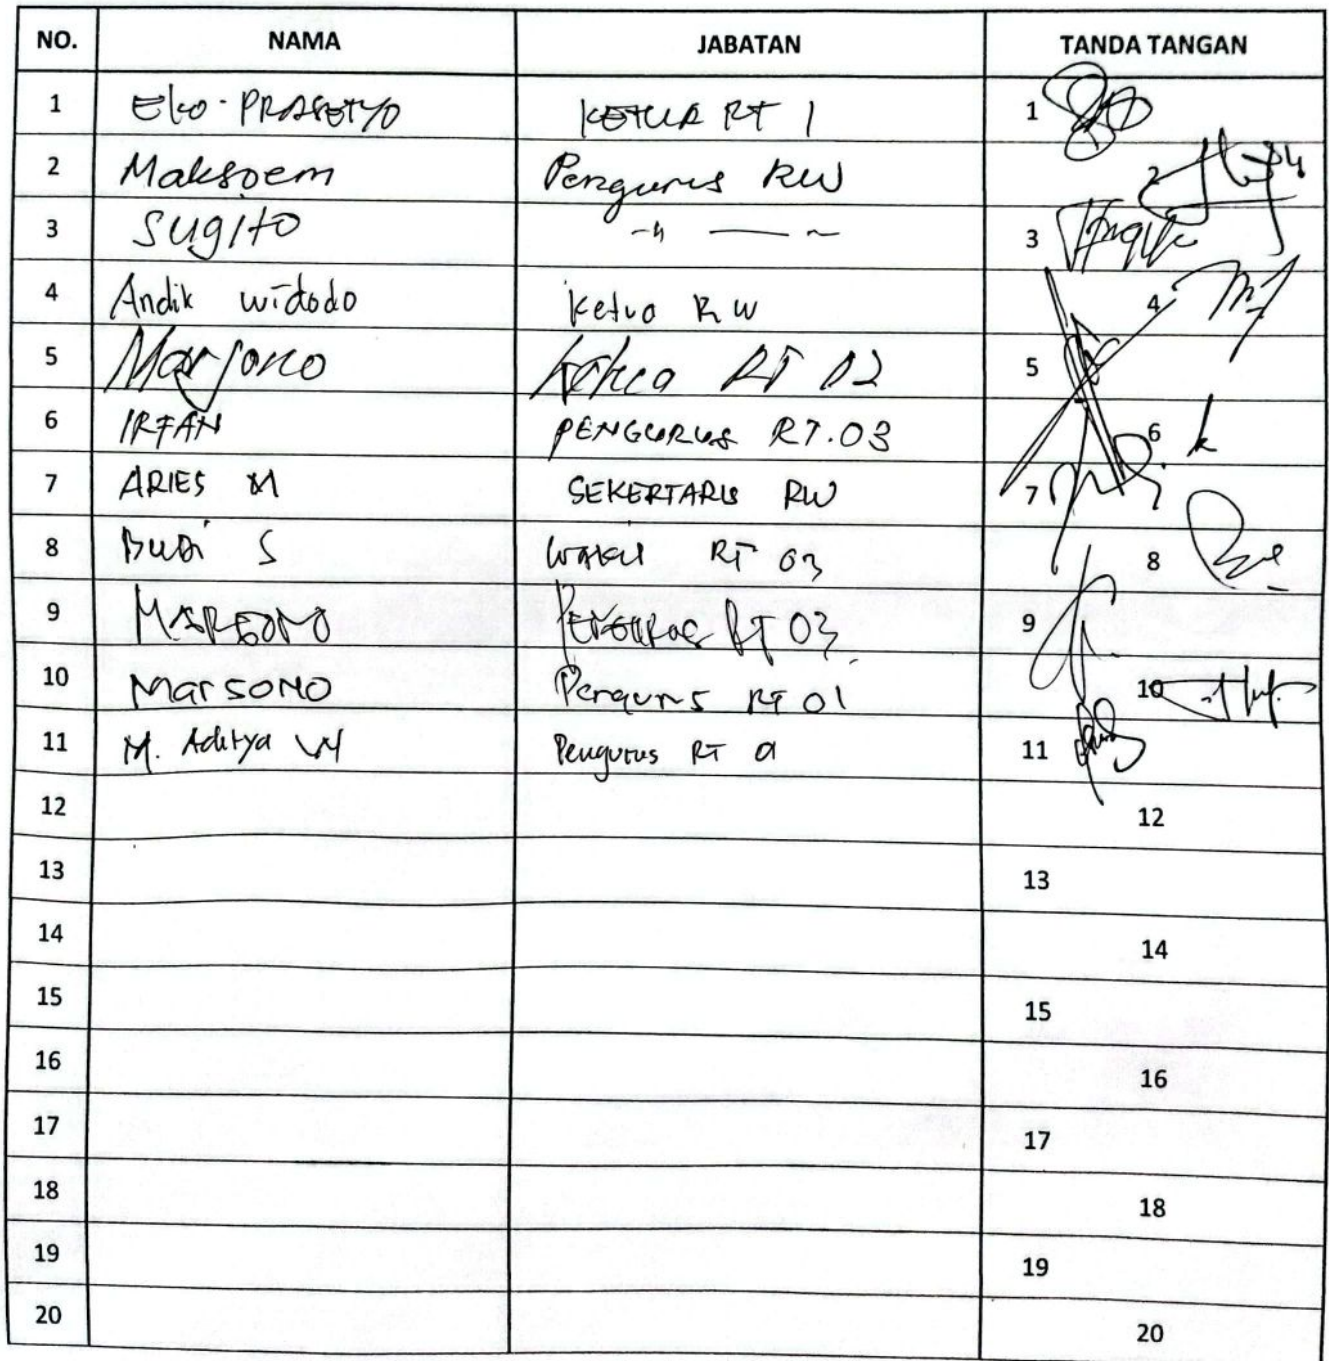 NO. NAMA JABATAN TANDA TANGAN
1 Eko PRASETYO KETUA RT 1 1
2 Maksoem Pengurus RW 2
3 Sugito -〃- 3
4 Andik widodo Ketua RW 4
5 Marjono Ketua RT 02 5
6 IRFAN PENGURUS RT.03 6
7 ARIES M SEKERTARIS RW 7
8 BUDI S WAKIL RT 03 8
9 MARSONO PENGURUS RT 03 9
10 MarSONO Pengurus RT 01 10
11 M. Aditya W Pengurus RT 11
12 12
13 13
14 14
15 15
16 16
17 17
18 18
19 19
20 20